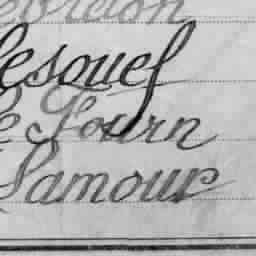 lesouef
e Fourn
Lamour